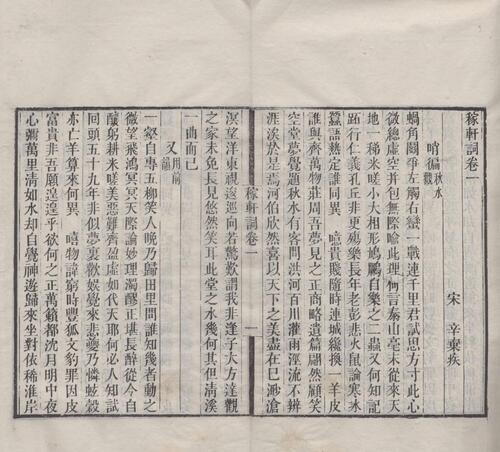 稼軒詞卷一
宋 辛棄疾
哨徧 秋水觀
蝸角鬬爭左觸右蠻一戰連千里君試思方寸此心
微總虛空并包無際喻此理何言泰山毫末從來天
地一稊米嗟小大相形鳩鵬自樂之二蟲又何知記
跖行仁義孔丘非更殤樂長年老彭悲火鼠論寒冰
蠶語熱定誰同異 噫貴賤隨時連城纔換一羊皮
誰與齊萬物莊周吾夢見之正商略遺篇翩然顧笑
空堂夢覺題秋水有客問洪河百川灌雨涇流不辨
涯涘於是焉河伯欣然喜以天下之美盡在已渺滄
稼軒詞卷一 一
溟望洋東視逡巡向若驚歎謂我非逢子大方達觀
之家未免長見悠然笑耳此堂之水幾何其但淸溪
一曲而已
又 用前韻
一壑自專五柳笑人晚乃歸田里問誰知幾者動之
微望飛鴻冥冥天際論妙理濁醪正堪長醉從今自
釀躬耕米嗟美惡難齊盈虛如代天耶何必人知試
回頭五十九年非似夢裏歡娛覺來悲夔乃憐蚿穀
亦亡羊算來何異 嘻物諱窮時豐狐文豹罪因皮
富貴非吾願遑遑乎欲何之正萬籟都沈月明中夜
心彌萬里淸如水却自覺神遊歸來坐對依稀淮岸